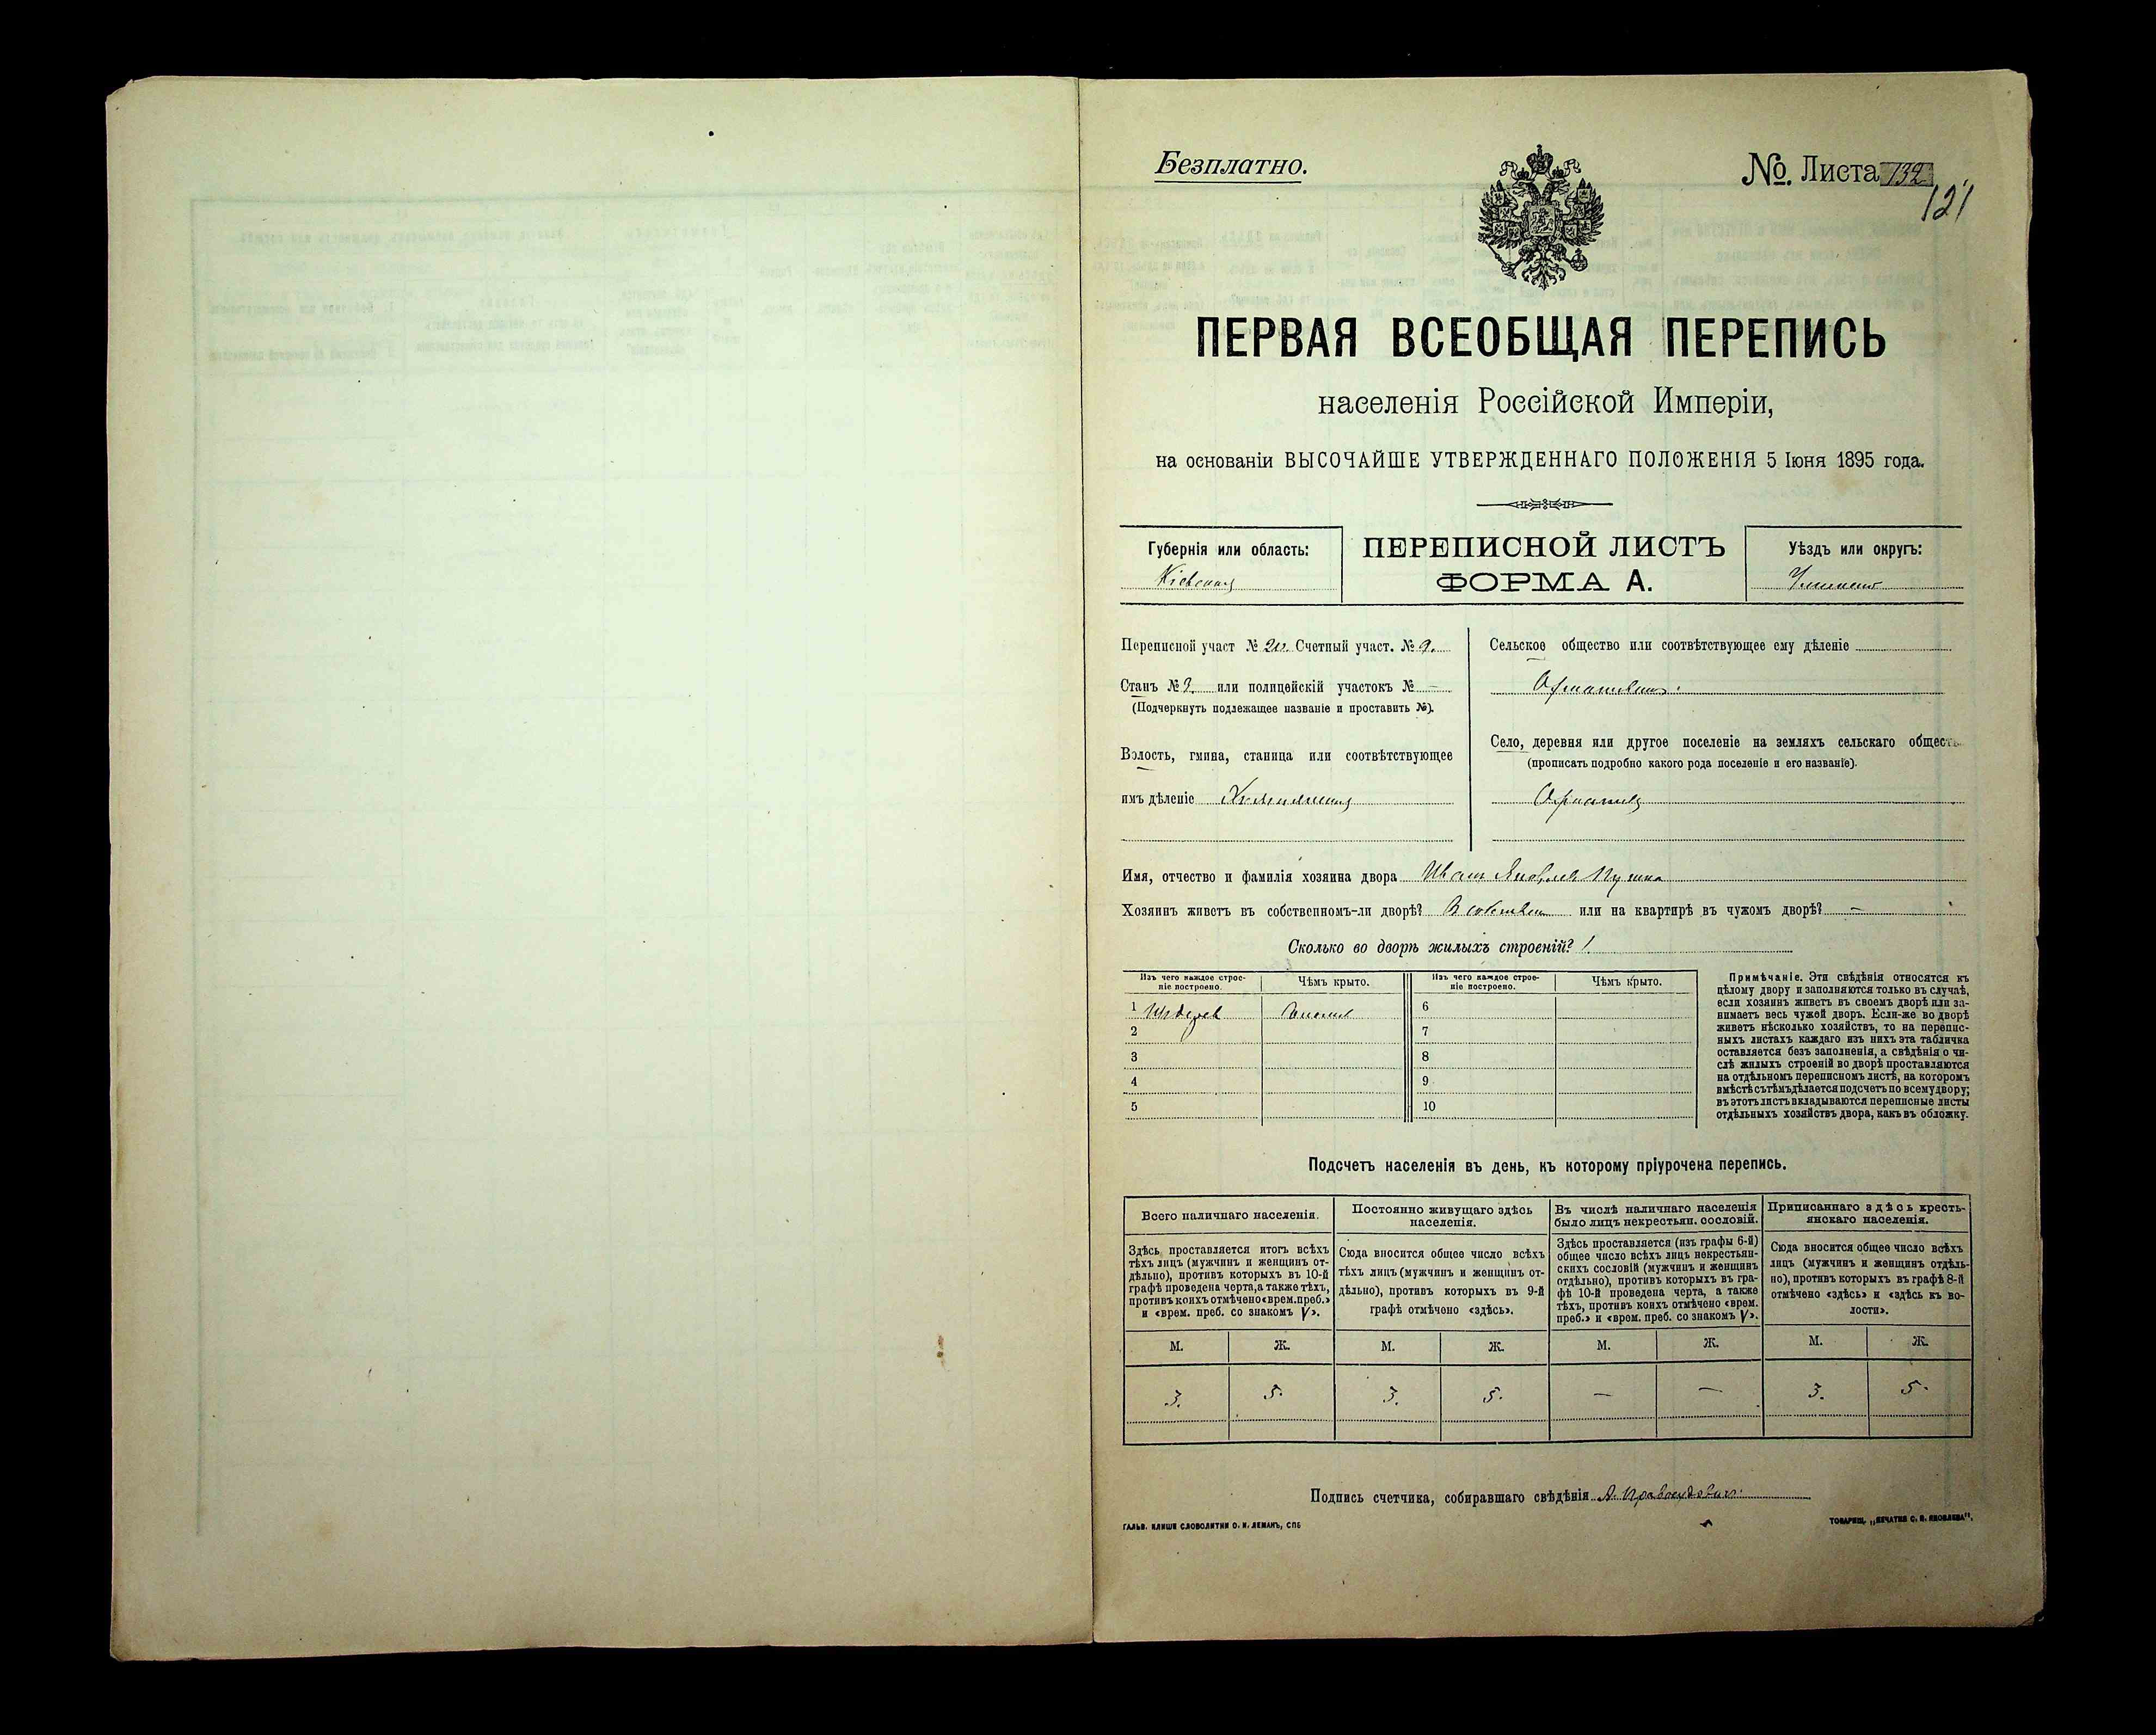 Безплатно.
№. Листа 132
121
ПЕРВАЯ ВСЕОБЩАЯ ПЕРЕПИСЬ
населенія Россійской Имперіи,
на основаніи ВЫСОЧАЙШЕ УТВЕРЖДЕННАГО ПОЛОЖЕНІЯ 5 Іюня 1895 года.
Губернія или область:
Кіевская
ПЕРЕПИСНОЙ ЛИСТЪ
ФОРМА А.
Уѣздъ или округъ:
Переписной участ № Счетный участ. № 9.
Станъ № 3. или полицейскій участокъ № —
(Подчеркнуть подлежащее названіе и проставить №).
Волость, гмина, станица или соотвѣтствующее
имъ дѣленіе
Сельское общество или соотвѣтствующее ему дѣленіе
Село, деревня или другое поселеніе на земляхъ сельскаго обществ
(прописать подробно какого рода поселеніе и его названіе).
Имя, отчество и фамилія хозяина двора Иванъ Яковлевъ
Хозяинъ живетъ въ собственномъ-ли дворѣ? или на квартирѣ въ чужомъ дворѣ? —
Сколько во дворѣ жилыхъ строеній? 1
Изъ чего каждое строеніе построено.
Чѣмъ крыто.
Изъ чего каждое строеніе построено.
Чѣмъ крыто.
1
2
3
4
5
6
7
8
9
10
Примѣчаніе. Эти свѣдѣнія относятся къ
цѣлому двору и заполняются только въ случаѣ,
если хозяинъ живетъ въ своемъ дворѣ или за-
нимаетъ весь чужей дворъ. Если-же во дворѣ
живетъ нѣсколько хозяйствъ, то на перепис-
ныхъ листахъ каждаго изъ нихъ эта табличка
оставляется безъ заполненія, а свѣдѣнія о чи-
слѣ жилыхъ строеній во дворѣ проставляются
на отдѣльномъ переписномъ листѣ, на которомъ
вмѣстѣ съ тѣмъ дѣлается подсчетъ по всему двору;
въ этотъ листъ вкладываются переписные листы
отдѣльныхъ хозяйствъ двора, какъ въ обложку.
Подсчетъ населенія въ день, къ которому пріурочена перепись.
Всего наличнаго населенія.
Здѣсь проставляется итогъ всѣхъ
тѣхъ лицъ (мужчинъ и женщинъ от-
дѣльно), противъ которыхъ въ 10-й
графѣ проведена черта, а также тѣхъ,
противъ коихъ отмѣчено «врем. преб.»
и «врем. преб. со знакомъ V».
Постоянно живущаго здѣсь
населенія.
Сюда вносится общее число всѣхъ
тѣхъ лицъ (мужчинъ и женщинъ от-
дѣльно), противъ которыхъ въ 9-й
графѣ отмѣчено «здѣсь».
Въ числѣ наличнаго населенія
было лицъ некрестьян. сословій.
Здѣсь проставляется (изъ графы 6-й)
общее число всѣхъ лицъ некрестьян-
скихъ сословій (мужчинъ и женщинъ
отдѣльно), противъ которыхъ въ гра-
фѣ 10-й проведена черта, а также
тѣхъ, противъ коихъ отмѣчено «врем.
преб.» и «врем. преб. со знакомъ V».
Приписаннаго здѣсь кресть-
янскаго населенія.
Сюда вносится общее число всѣхъ
лицъ (мужчинъ и женщинъ отдѣль-
но), противъ которыхъ въ графѣ 8-й
отмѣчено «здѣсь» и «здѣсь къ во-
лости».
М. Ж. М. Ж. М. Ж. М. Ж.
3. 5. 3. 5. — — 3. 5.
Подпись счетчика, собиравшаго свѣдѣнія
ГАЛЬВ. КЛИШЕ СЛОВОЛИТНИ О. И. ЛЕМАНЪ, СПБ
ТОВАРИЩ. „ПЕЧАТНЯ С. П. ЯКОВЛЕВА“.